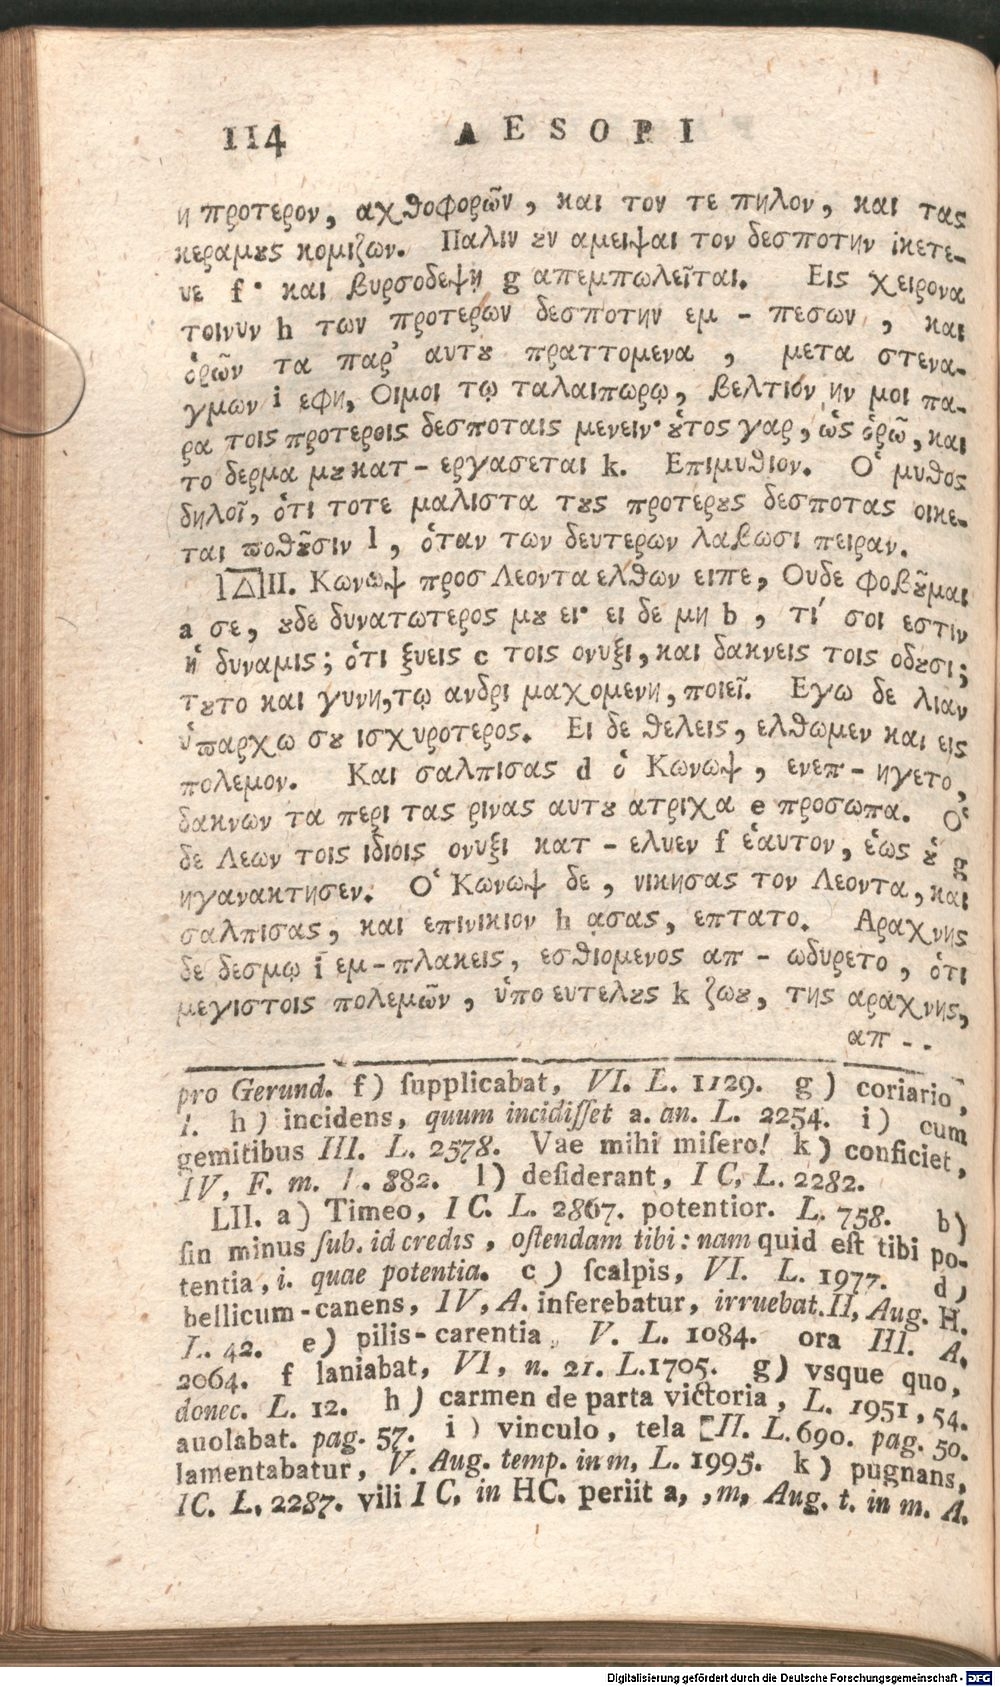 114 AESOPI
η προτερον, αχθοφορῶν, και τον τε πηλον, και τας
κεραμȣς κομιζων. Παλιν ȣν αμειψαι τον δεσποτην ἱκετε-
υε f· και βυρσοδεψῃ g απεμπωλεῖται. Εις χειρονα
τοινυν h των προτερων δεσποτην εμ - πεσων, και
ὁρῶν τα παρ’ αυτȣ πραττομενα, μετα στενα-
γμων i εφη, Οιμοι τῳ ταλαιπωρῳ, βελτιον ην μοι πα-
ρα τοις προτεροις δεσποταις μενειν· ȣ̔τος γαρ, ὡς ὁρῶ, και
το δερμα μȣ κατ-εργασεται k. Επιμυθιον. Ὁ μυθος
δηλοῖ, ὁτι τοτε μαλιστα τȣς προτερȣς δεσποτας οικε-
ται ποθȣ͂σιν l, ὁταν των δευτερων λαβωσι πειραν.
|Δ|II. Κωνωψ προς Λεοντα ελθων ειπε, Ουδε φοβȣ͂μαι
a σε, ȣδε δυνατωτερος μȣ ει· ει δε μη b, τί σοι εστιν
ἡ δυναμις; ὁτι ξυεις c τοις ονυξι, και δακνεις τοις οδȣσι;
τȣτο και γυνη, τῳ ανδρι μαχομενη, ποιεῖ. Εγω δε λιαν
ὑπαρχω σȣ ισχυροτερος. Ει δε θελεις, ελθωμεν και εις
πολεμον. Και σαλπισας d ὁ Κωνωψ, ενεπ-ηγετο,
δακνων τα περι τας ρινας αυτȣ ατριχα e προσωπα. Ὁ
δε Λεων τοις ιδιοις ονυξι κατ-ελυεν f ἑαυτον, ἑως ȣ̔ g
ηγανακτησεν. Ὁ Κωνωψ δε, νικησας τον Λεοντα, και
σαλπισας, και επινικιον h ᾳσας, επτατο. Αραχνης
δε δεσμῳ i εμ-πλακεις, εσθιομενος απ-ωδυρετο, ὁτι
μεγιστοις πολεμῶν, ὑπο ευτελȣς k ζωȣ, της αραχνης,
απ - -
pro Gerund. f) ſupplicabat, VI. L. 1129. g) coriario,
1. h) incidens, quum incidiſſet a. an. L. 2254. i) cum
gemitibus III. L. 2578. Vae mihi miſero! k) conficiet,
IV, F. m. l. 882. l) deſiderant, I C, L. 2282.
LII. a) Timeo, I C. L. 2867. potentior. L. 758. b)
ſin minus ſub. id credis, oſtendam tibi: nam quid eſt tibi po-
tentia, i. quae potentia. c) ſcalpis, VI. L. 1977. d)
bellicum-canens, IV, A. inferebatur, irruebat. II, Aug. H.
L. 42. e) pilis-carentia, V. L. 1084. ora III. A.
2064. f laniabat, VI, n. 21. L. 1705. g) vsque quo,
donec. L. 12. h) carmen de parta victoria, L. 1951, 54.
auolabat. pag. 57. i) vinculo, tela [II. L. 690. pag. 50.
lamentabatur, V. Aug. temp. in m, L. 1995. k) pugnans,
IC. L. 2287. vili I C, in HC. periit a, ,m, Aug. t. in m. A.
Digitalisierung gefördert durch die Deutsche Forschungsgemeinschaft - DFG